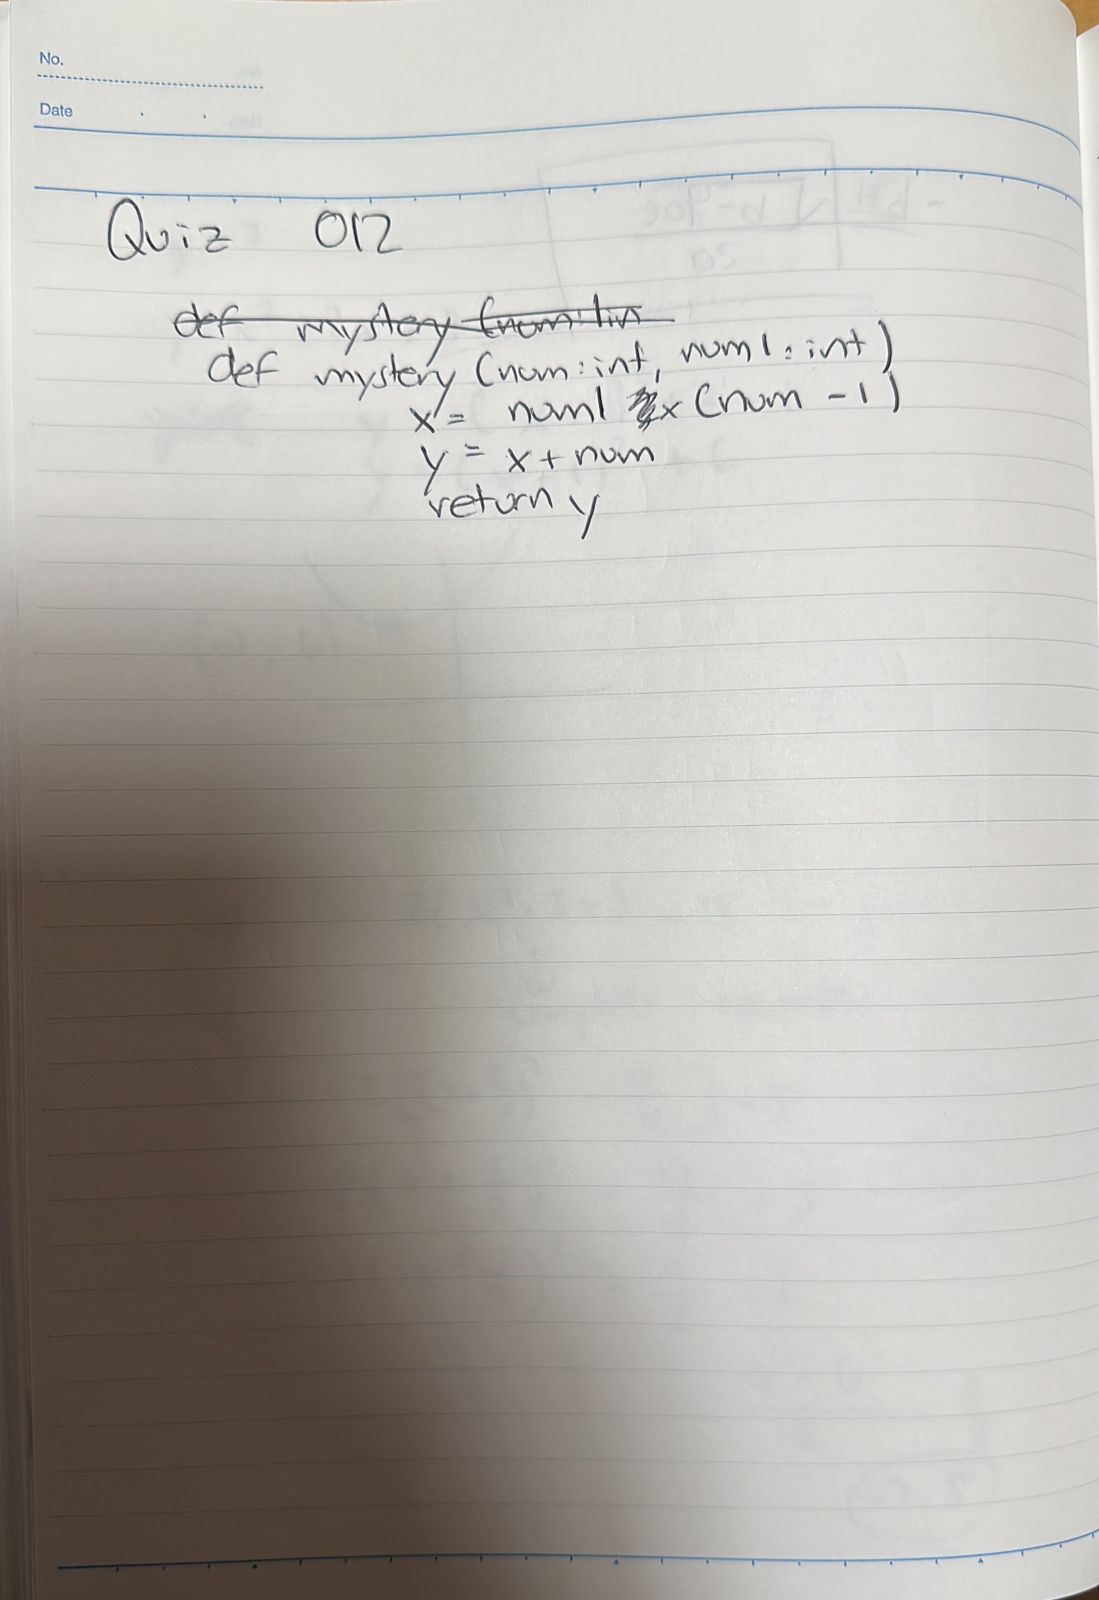 No.
Date
Quiz 012
def mystery (num: lin
def mystery (num: int, num1: int)
x = num1 x (num - 1)
y = x + num
return y